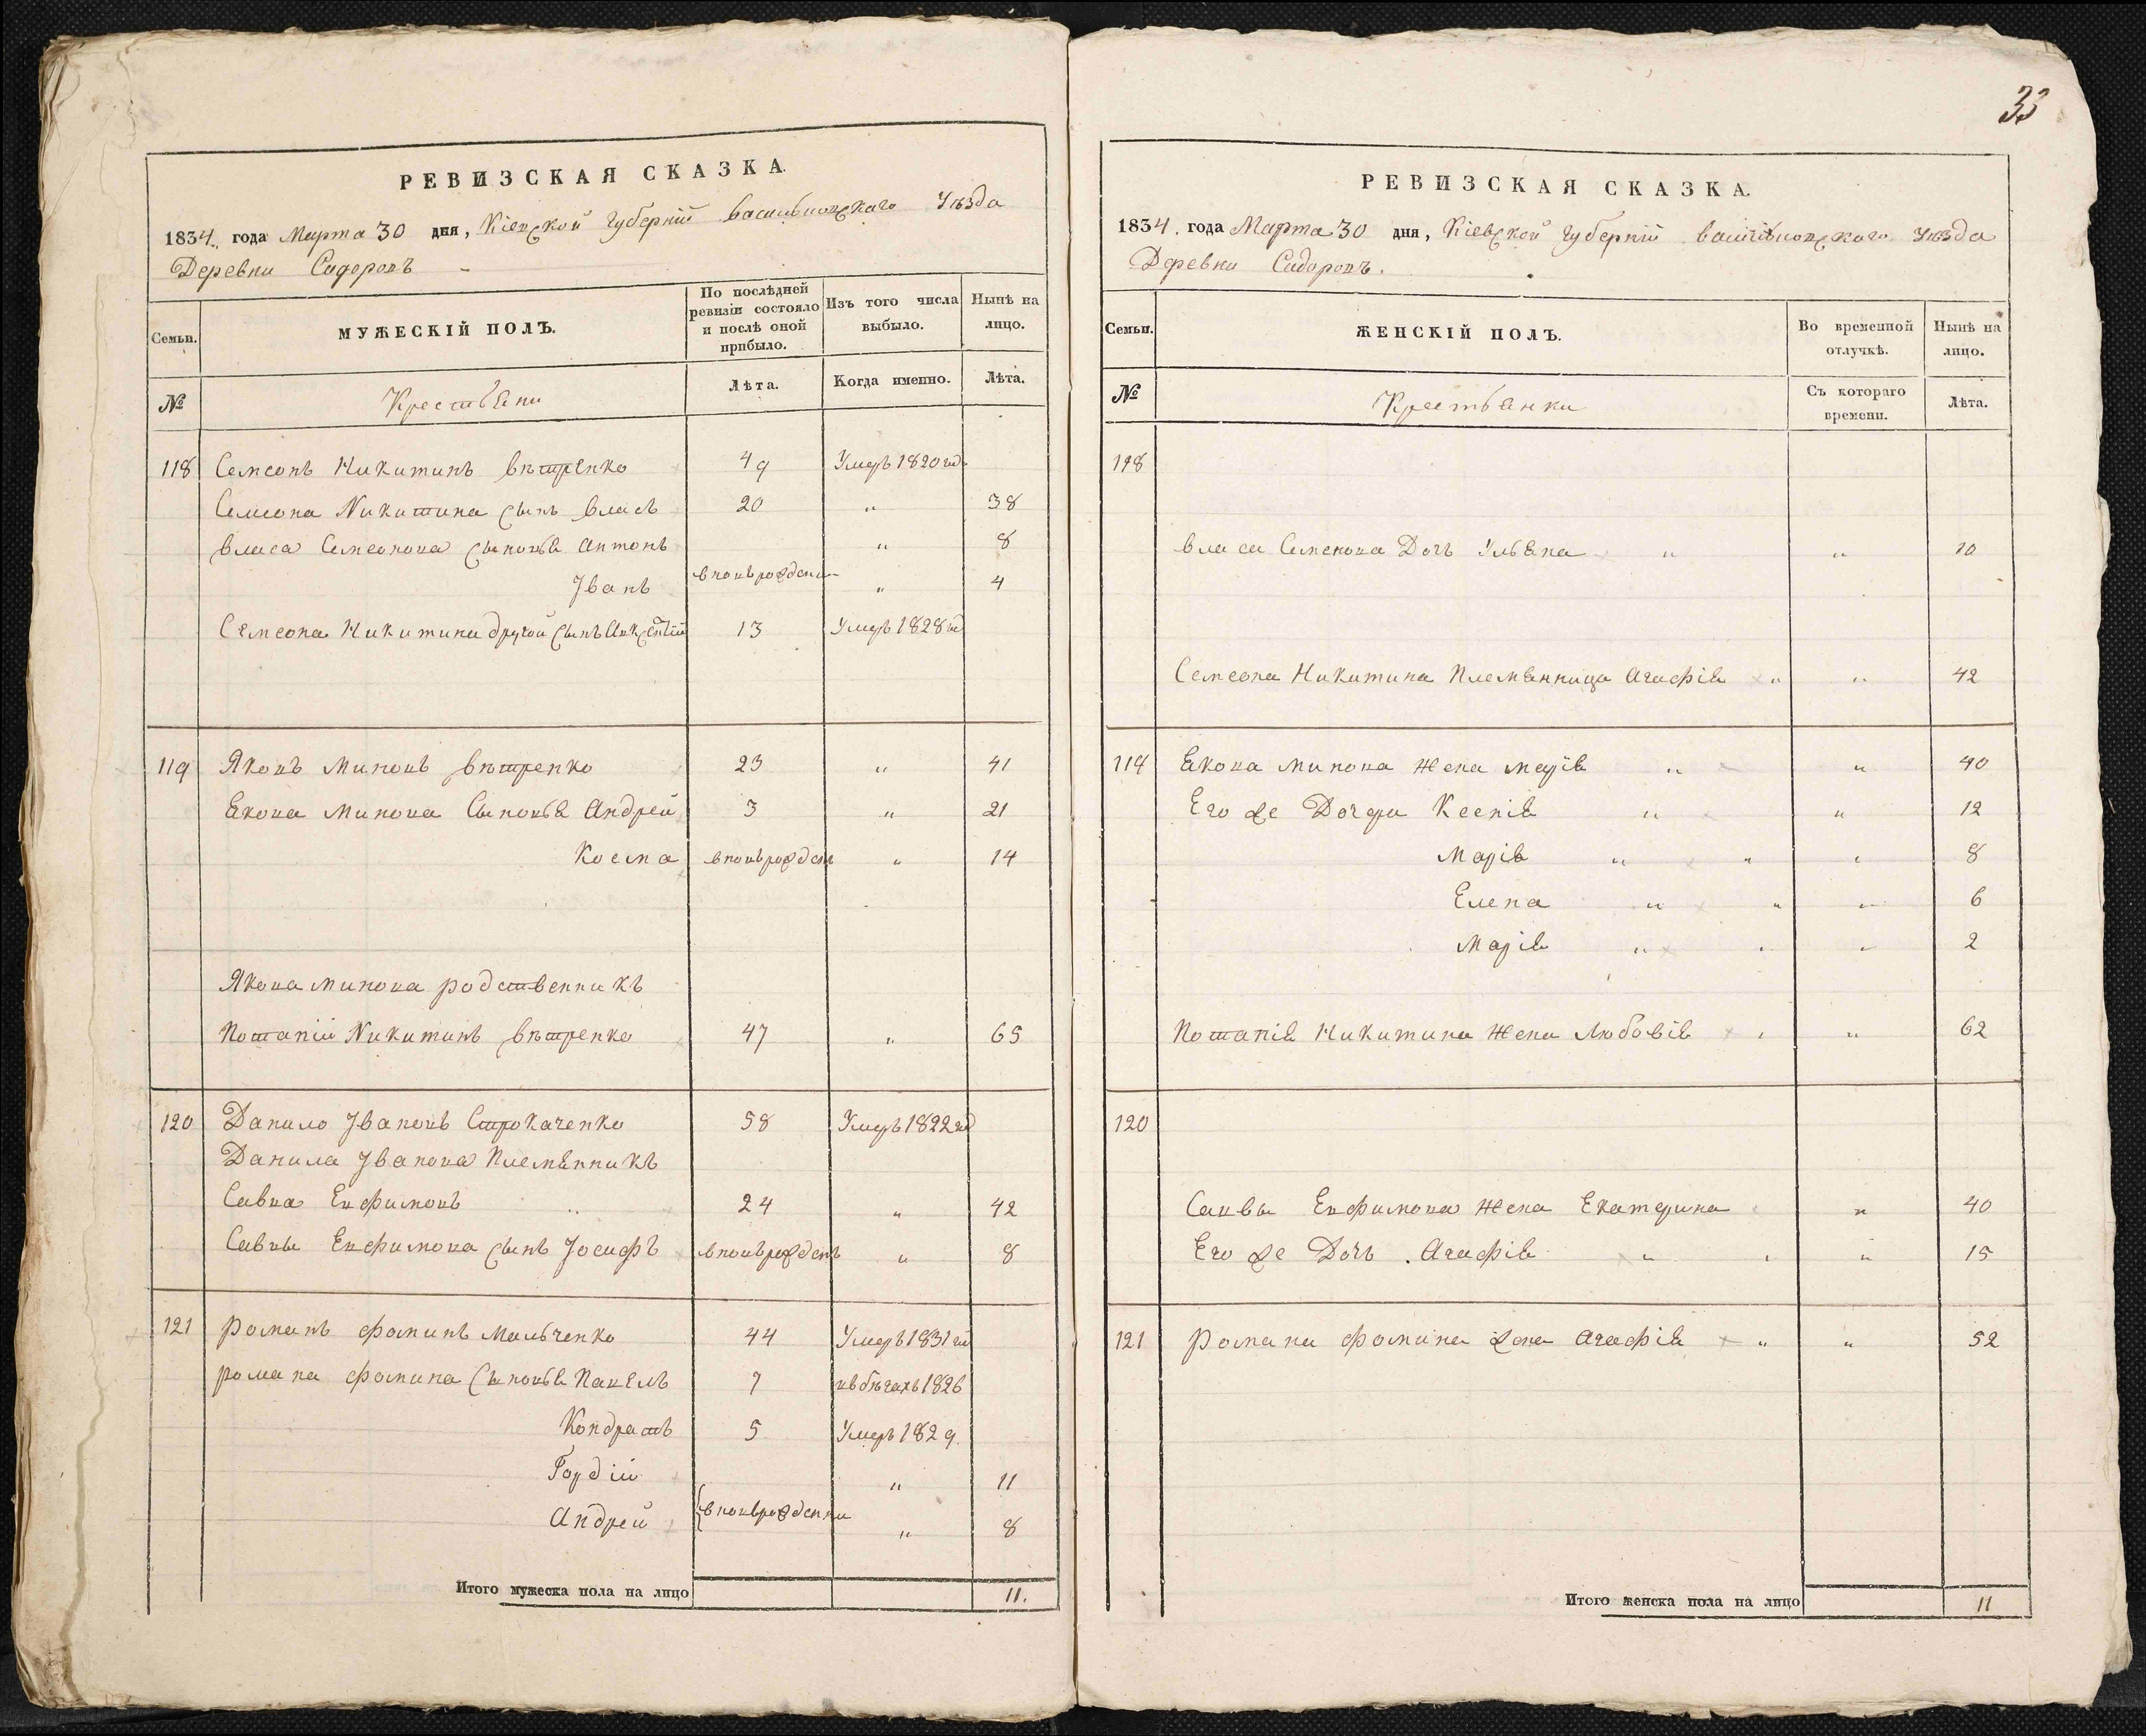 33
РЕВИЗСКАЯ СКАЗКА.
1834. года Марта 30 дня, Кіевской губерніи васильковскаго Уѣзда
Деревни Сидоровъ
Семьи.
МУЖЕСКІЙ ПОЛЪ.
По послѣдней ревизіи состояло и послѣ оной прибыло.
Изъ того числа выбыло.
Нынѣ на лицо.
№
Крестьяни
Лѣта.
Когда именно.
Лѣта.
118 Семеонъ Никитинъ вѣтренко 49 Умеръ 1820 год
Семеона Никитина сынъ власъ 20 „ 38
власа Семеонова сыновья антонъ „ 8
Іванъ вновьрождени „ 4
Семеона Никитина другой сынъ Авксентій 13 Умеръ 1828 год
119 Яковъ Миновъ вѣтренко 23 „ 41
Якова Минова Сыновья Андрей 3 „ 21
Косма вновьрожден „ 14
Якова Минова родственникъ
Потапій Никитинъ вѣтренко 47 „ 65
120 Данило Івановъ Строкаченко 58 Умеръ 1822 год
Данила Іванова Племянникъ
Савва Евфимовъ 24 „ 42
Саввы Евфимова сынъ Іосифъ вновьрожденъ „ 8
121 Романъ фоминъ Мильченко 44 Умеръ 1831 год
романа фомина Сыновья Павелъ 7 въ бѣгахъ 1826
Кондратъ 5 Умеръ 1829.
Гордій „ 11
Андрей вновьрожденни „ 8
Итого мужеска пола на лицо 11.
РЕВИЗСКАЯ СКАЗКА.
1834. года Марта 30 дня, Кіевской губерніи васильковскаго Уѣзда
Деревни Сидоровъ.
Семьи.
ЖЕНСКІЙ ПОЛЪ.
Во временной отлучкѣ.
Нынѣ на лицо.
№
Крестьянки
Съ котораго времени.
Лѣта.
118
власа Семенова Дочь Ульяна „ „ 10
Семеона Никитина Племянница агафія „ „ 42
119 Якова Минова жена марія „ „ 40
Его же Дочери Ксенія „ „ 12
Марія „ „ „ 8
Елена „ „ „ 6
Марія „ „ „ 2
Потапія Никитина жена Любовія „ „ 62
120
Саввы Евфимова жена Екатерина „ 40
Его же Дочь. Агафія „ „ „ 15
121 Романа фомина жена агафія „ „ 52
Итого женска пола на лицо 11